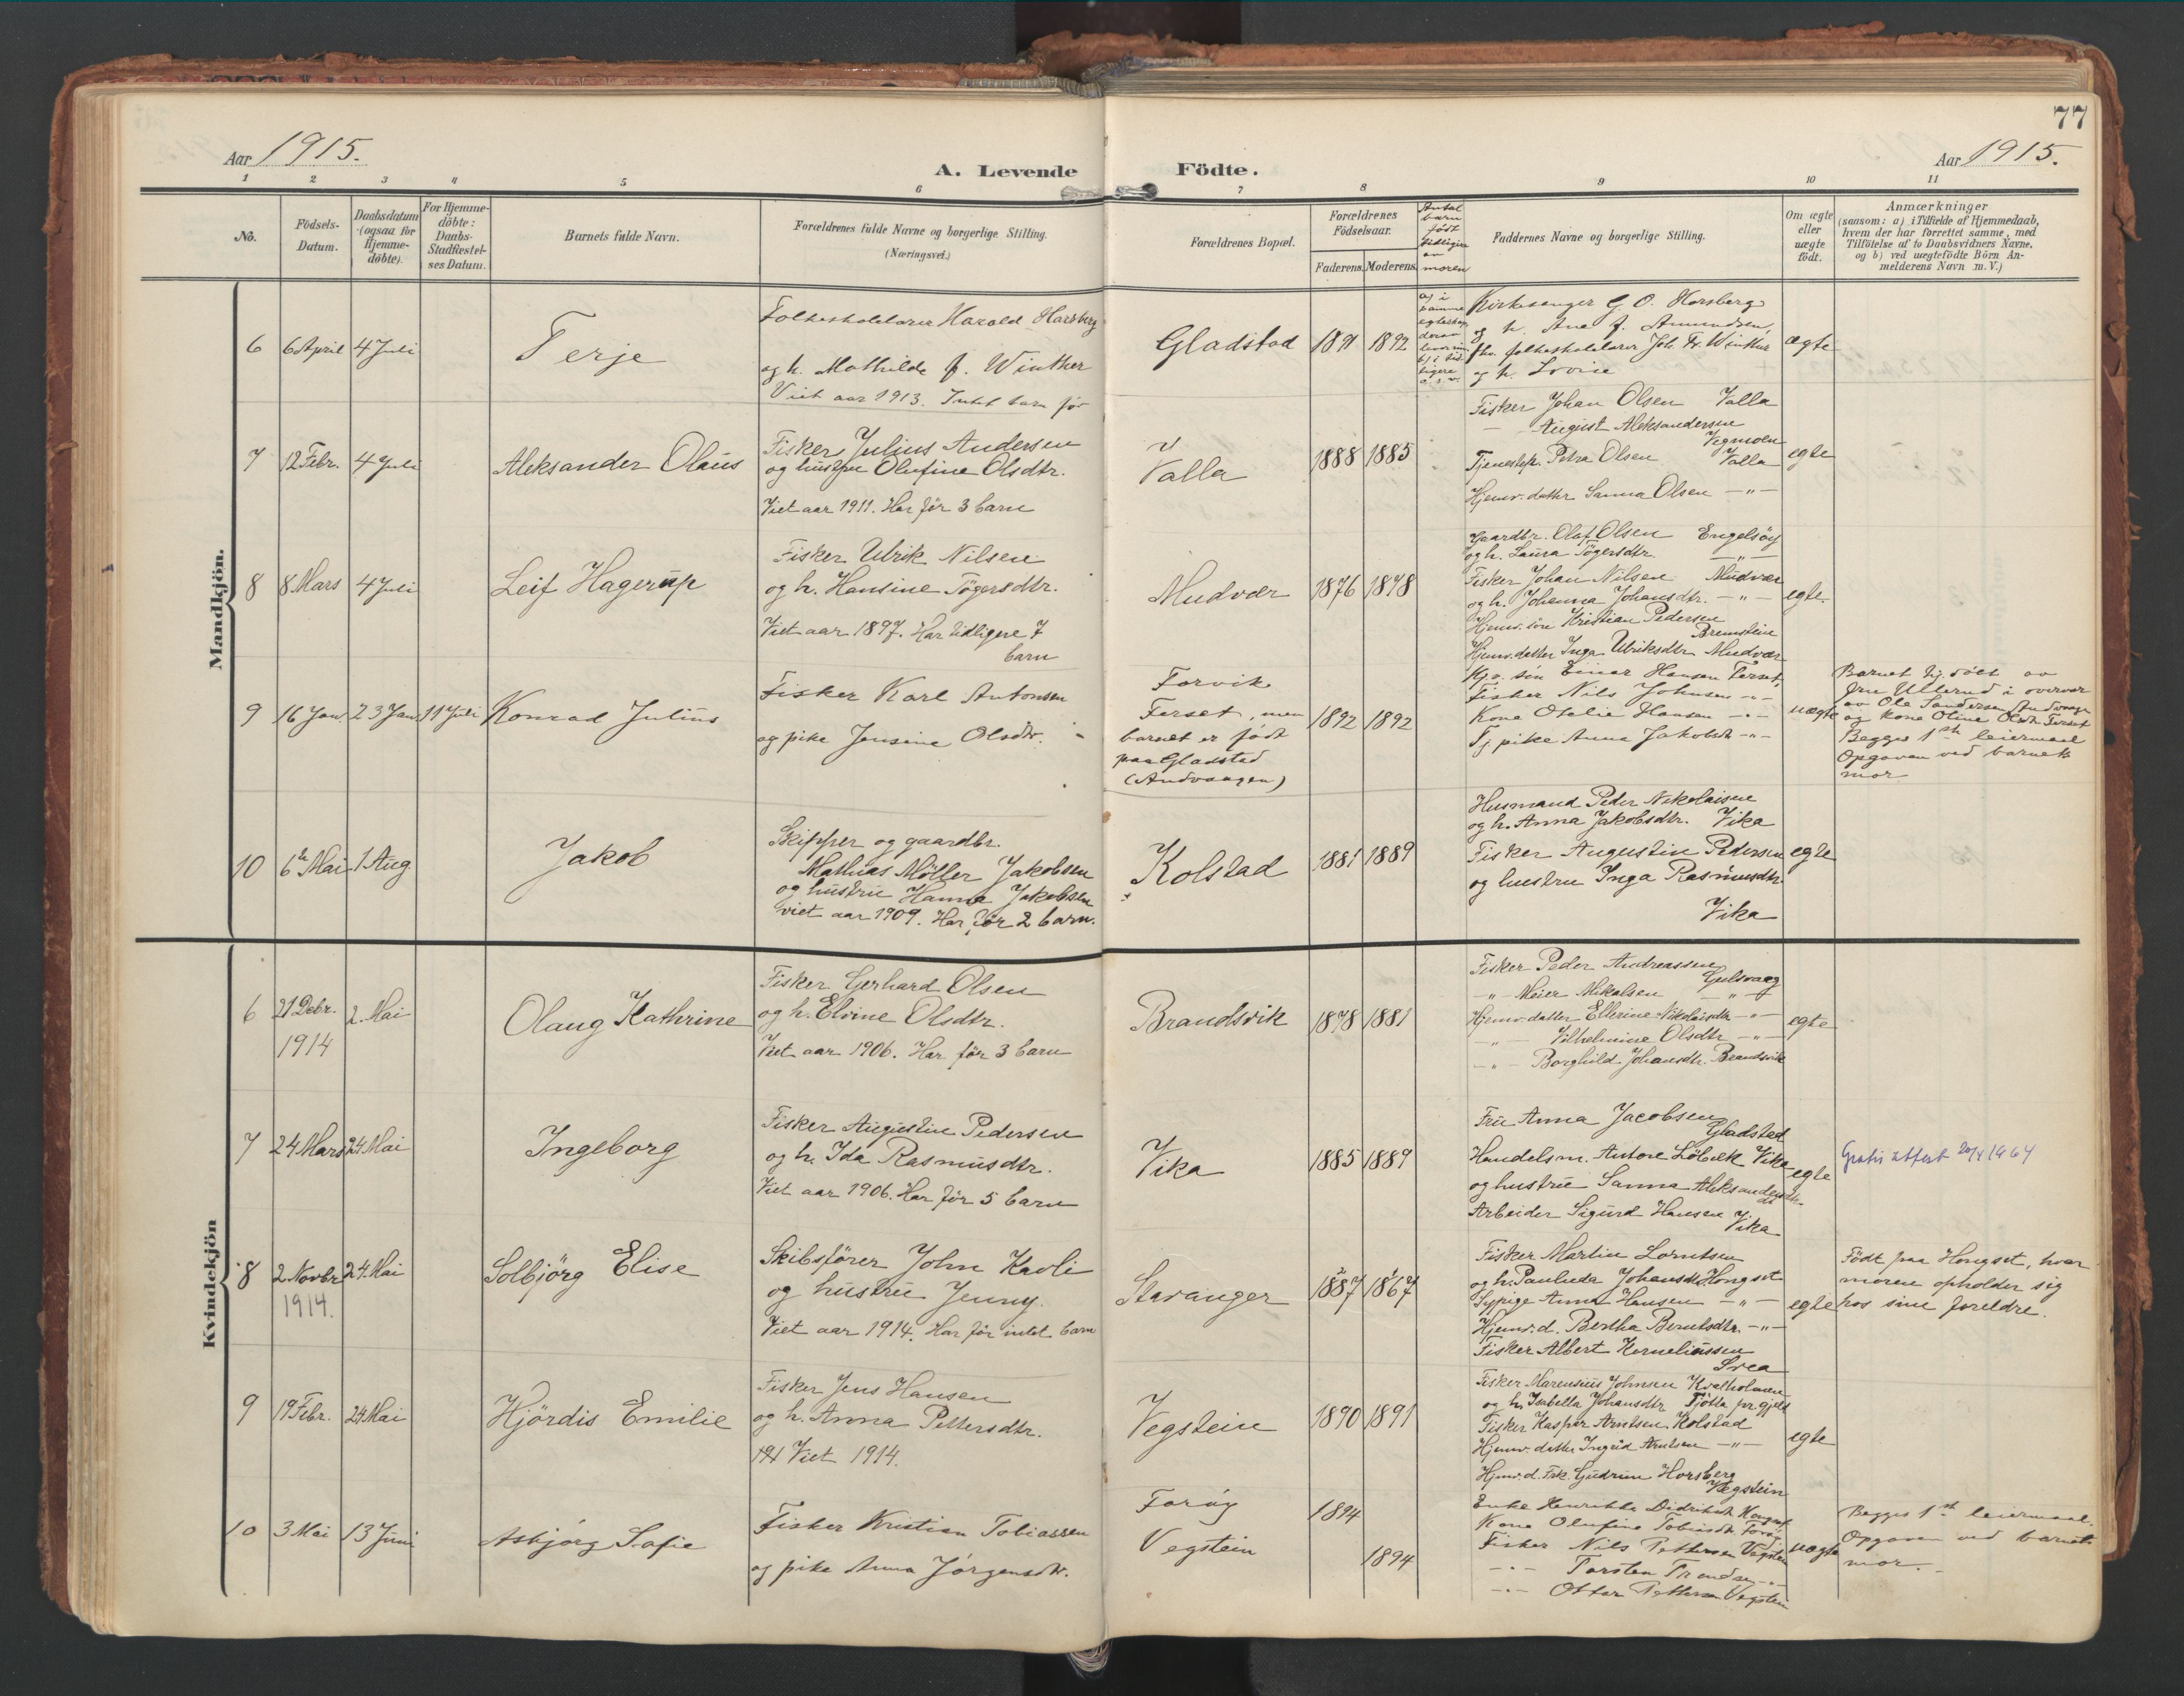 77
Aar 1915.
A. Levende Födte.
Aar 1915.
1 2 3 4 5 6 7 8 9 10 11
No.
Födsels-
Datum.
Daabsdatum
(ogsaa for
Hjemme-
döbte).
For Hjemme-
döbte:
Daabs-
Stadfæstel-
ses Datum.
Barnets fulde Navn.
Forældrenes fulde Navne og borgerlige Stilling.
(Næringsvei.)
Forældrenes Bopæl.
Forældrenes
Födselsaar.
Faderens. Moderens.
Antal
barn
født
tidligere
av
moren
Faddernes Navne og borgerlige Stilling.
Om ægte
eller
uægte
födt.
Anmærkninger
(saasom: a) i Tilfælde af Hjemmedaab,
hvem der har forrettet samme, med
Tilföielse af to Daabsvidners Navne,
og b) ved uægtefödte Börn An-
melderens Navn m. V.)
Mandkjön.
6 6 April 4 Juli
Terje
Folkeskolelærer Harald Horsberg
og h. Mathilde f. Winther
Viet aar 1913. Intet barn før
Gladstad
1891 1892
Kirkesanger G. O. Horsberg
og h. Ane f. Amundsen,
fhv. folkeskolelærer Joh. Fr. Winther
og h. Lovise
ægte
7 12 Febr. 4 Juli
Aleksander Olaus
Fisker Julius Andersen
og hustru Olufine Olsdtr.
Viet aar 1911. Har før 3 barn
Valla
1888 1885
Fisker Johan Olsen Valla
- August Aleksandersen
Vegmoen
Tjenestep. Petra Olsen Valla
Hjemv. datter Sanna Olsen -"-
egte
8 8 Mars 4 Juli
Leif Hagerup
Fisker Ulrik Nilsen
og h. Hansine Tögersdtr.
Viet aar 1897. Har tidligere 7
barn
Mudvær
1876 1878
Gaardbr. Olaf Olsen Engelsöy
og h. Laura Tögersdtr. -"-
Fisker Johan Nilsen Mudvær
og h. Johanna Johansdtr. -"-
Hjemv. sön Kristian Pedersen
Bremstein
Hjemv. datter Inga Ulriksdtr. Mudvær
egte.
9 16 Jan. 23 Jan. 11 Juli
Konrad Julius
Fisker Karl Antonsen
og pike Jensine Olsdtr.
Forvik
Ferset, men
barnet er født
paa Gladstad
(Andvaagen)
1892 1892
Hjv. sön Einar Hansen Ferset,
Fisker Nils Johnsen -"-
Kone Otelie Hansen -"-
Tj pike Anna Jakobsdtr -"-
uægte
Barnet hj.døbt av
fru Ullerud i overvær
av Ole Sandersen Andvaage
og kone Oline Olsdtr Ferset
Begges 1ste leiermaal
Opgaven ved barnets
mor
10 6te Mai 1 Aug
Jakob
Skipper og gaardbr.
Mathias Möller Jakobsen
og hustru Hanna Jakobsen
viet aar 1909. Har før 2 barn.
Kolstad
1881 1889
Husmand Peder Nikolaisen
og h. Anna Jakobsdtr. Vika
Fisker Augustin Pedersen
og hustru Inga Rasmusdtr.
Vika
egte
Kvindekjön
6 21 Debr. 2. Mai
1914
Olaug Kathrine
Fisker Gerhard Olsen
og h. Elvine Olsdtr.
Viet aar 1906. Har før 3 barn
Brandsvik
1878 1881
Fisker Peder Andreassen
Gulsvaag
-"- Meier Mikalsen -"-
Hjemv. datter Ellerine Nikolaisdtr -"-
-"- Vilhelmine Olsdtr -"-
-"- Borghild Johansdtr. Brandsvik
egte
7 24 Mars 24. Mai
Ingeborg
Fisker Augustin Pedersen
og h. Ida Rasmusdtr.
Viet aar 1906. Har før 5 barn
Vika
1885 1889
Fru Anna Jacobsen
Gladstad
Handelsm. Antore Löbæk Vika
og hustru Sanna Aleksandersdtr.
Arbeider Sigurd Hansen
Vika
egte
Gratis attest 20/4 1964
8 2 Novbr 24. Mai
1914.
Solbjörg Elise
Skibsförer John Kavli
og hustru Jenny.
Viet aar 1914. Har før intet barn
Stavanger
1887 1867
Fisker Martin Lorntsen
og h. Paulicda Johansdtr Hongset
Sypige Anna Hansen -"-
Hjemv. d. Bertha Berntsdtr. -"-
Fisker Albert Korneliussen
Svea
egte
Födt paa Hongset, hvor
moren opholder sig
hos sine foreldre.
9 19 Febr. 24 Mai
Hjördis Emilie
Fisker Jens Hansen
og h. Anna Pettersdtr.
Viet 1914.
Vegstein
1890 1891
Fisker Marensius Johnsen Kvalholmen
og h. Isabella Johansdtr Tjötta pr.gjeld
Fisker Kaspar Arntsen Kolstad
Hjemv. datter Ingrid Arntsen -"-
Hjemv. d. Frk. Gudrun Horsberg
Vegstein
egte
10 3 Mai 13 Juni
Asbjørg Sofie
Fisker Kristian Tobiassen
og pike Anna Jørgensdtr.
Forøy
Vegstein
1894
1894
Enke Henrikke Didriksdtr Hongset
Kone Olufine Tobiasdtr Forøy
Fisker Nils Pettersen Vegstein
-"- Torsten Trondsen -"-
-"- Ottar Pettersen Vegstein
uægte
Begges 1ste leiermaal.
Opgaven ved barnets
mor.